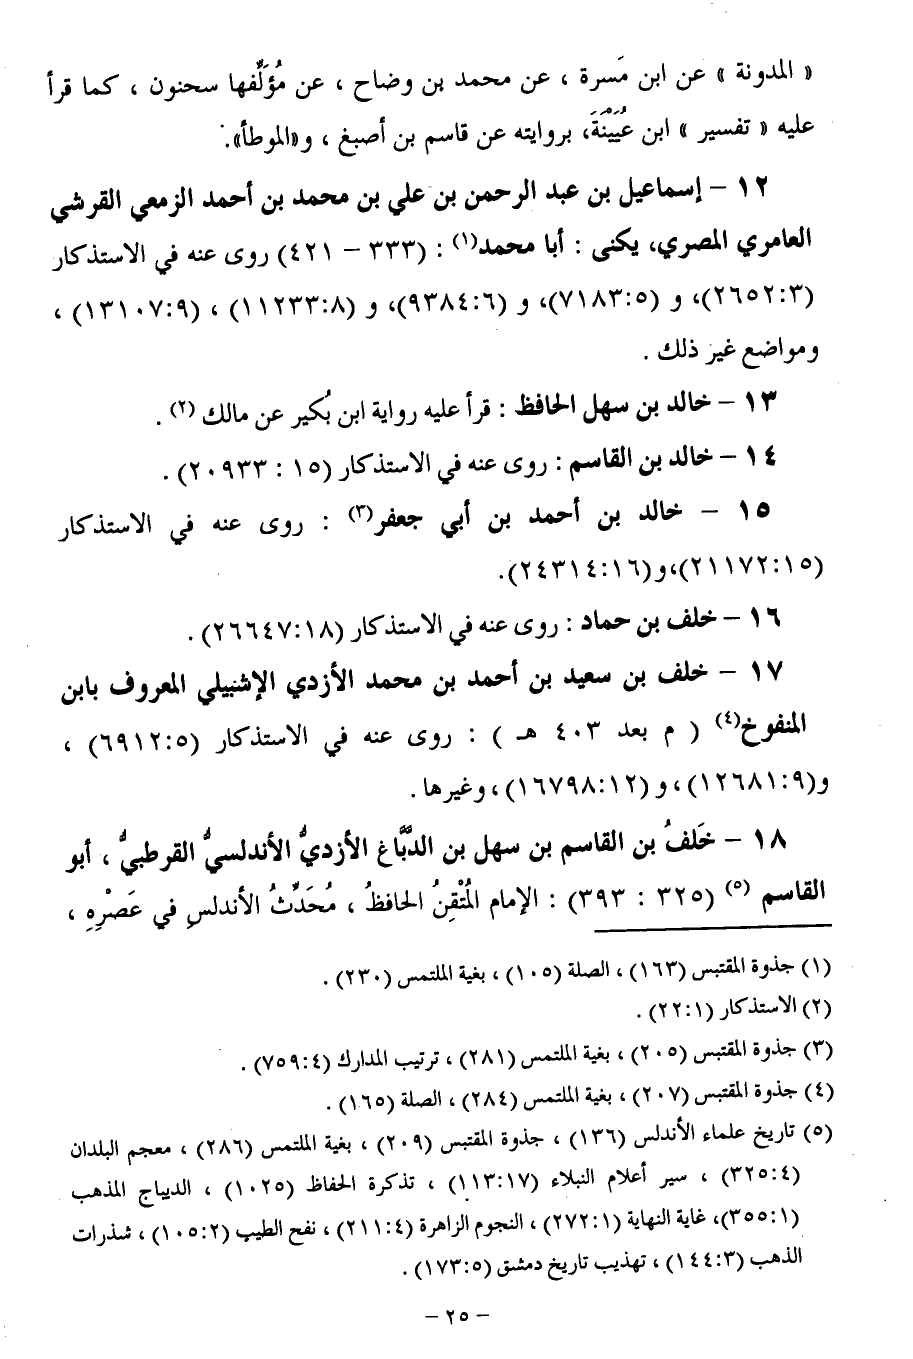 « المدونة » عن ابن مَسرة ، عن محمد بن وضاح ، عن مُؤلِّفها سحنون ، كما قرأ
عليه « تفسير » ابن عُيَيْنةَ، بروايته عن قاسم بن أصبغ ، و«الموطأ».
١٢ – إسماعيل بن عبد الرحمن بن علي بن محمد بن أحمد الزمعي القرشي
العامري المصري، يكنى : أبا محمد(١) : (٣٣٣ – ٤٢١) روى عنه في الاستذكار
(٢٦٥٢:٣)، و (٧١٨٣:٥)، و (٩٣٨٤:٦)، و (١١٢٣٣:٨) ، (١٣١٠٧:٩) ،
ومواضع غير ذلك .
١٣ – خالد بن سهل الحافظ : قرأ عليه رواية ابن بُكير عن مالك (٢) .
١٤ – خالد بن القاسم : روى عنه في الاستذكار (١٥ : ٢٠٩٣٣) .
١٥ – خالد بن أحمد بن أبي جعفر(٣) : روى عنه في الاستذكار
(٢١١٧٢:١٥)،و(٢٤٣١٤:١٦).
١٦ – خلف بن حماد : روى عنه في الاستذكار (٢٦٦٤٧:١٨) .
١٧ – خلف بن سعيد بن أحمد بن محمد الأزدي الإشبيلي المعروف بابن
المنفوخ(٤) ( م بعد ٤٠٣ هـ ) : روى عنه في الاستذكار (٦٩١٢:٥) ،
و(١٢٦٨١:٩)،و(١٦٧٩٨:١٢)،وغيرها.
١٨ – خَلفُ بن القاسم بن سهل بن الدَّبَّاغ الأزديُّ الأندلسيُّ القرطبيُّ ، أبو
القاسم (٥) (٣٢٥ : ٣٩٣) : الإمام المُتْقِنُ الحافظُ ، مُحَدِّثُ الأندلسِ في عَصْرِهِ ،
(١) جذوة المقتبس (١٦٣) ، الصلة (١٠٥) ، بغية الملتمس (٢٣٠) .
(٢) الاستذكار (٢٢:١) .
(٣) جذوة المقتبس (٢٠٥) ، بغية الملتمس (٢٨١) ، ترتيب المدارك (٧٥٩:٤) .
(٤) جذوة المقتبس (٢٠٧) ، بغية الملتمس (٢٨٤) ، الصلة (١٦٥) .
(٥) تاريخ علماء الأندلس (١٣٦) ، جذوة المقتبس (٢٠٩) ، بغية الملتمس (٢٨٦) ، معجم البلدان
(٣٢٥:٤) ، سير أعلام النبلاء (١١٣:١٧) ، تذكرة الحفاظ (١٠٢٥) ، الديباج المذهب
(٣٥٥:١)، غاية النهاية (٢٧٢:١) ، النجوم الزاهرة (٢١١:٤) ، نفح الطيب (١٠٥:٢) ، شذرات
الذهب (١٤٤:٣) ، تهذيب تاريخ دمشق (١٧٣:٥) .
– ٢٥ –